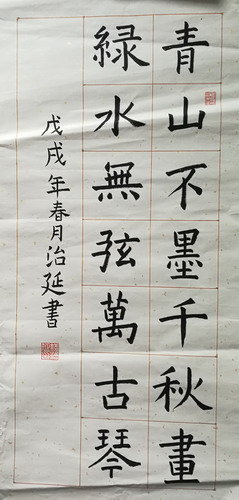 青山不墨千秋畫
緑水無弦萬古琴
戊戌年春月治延書